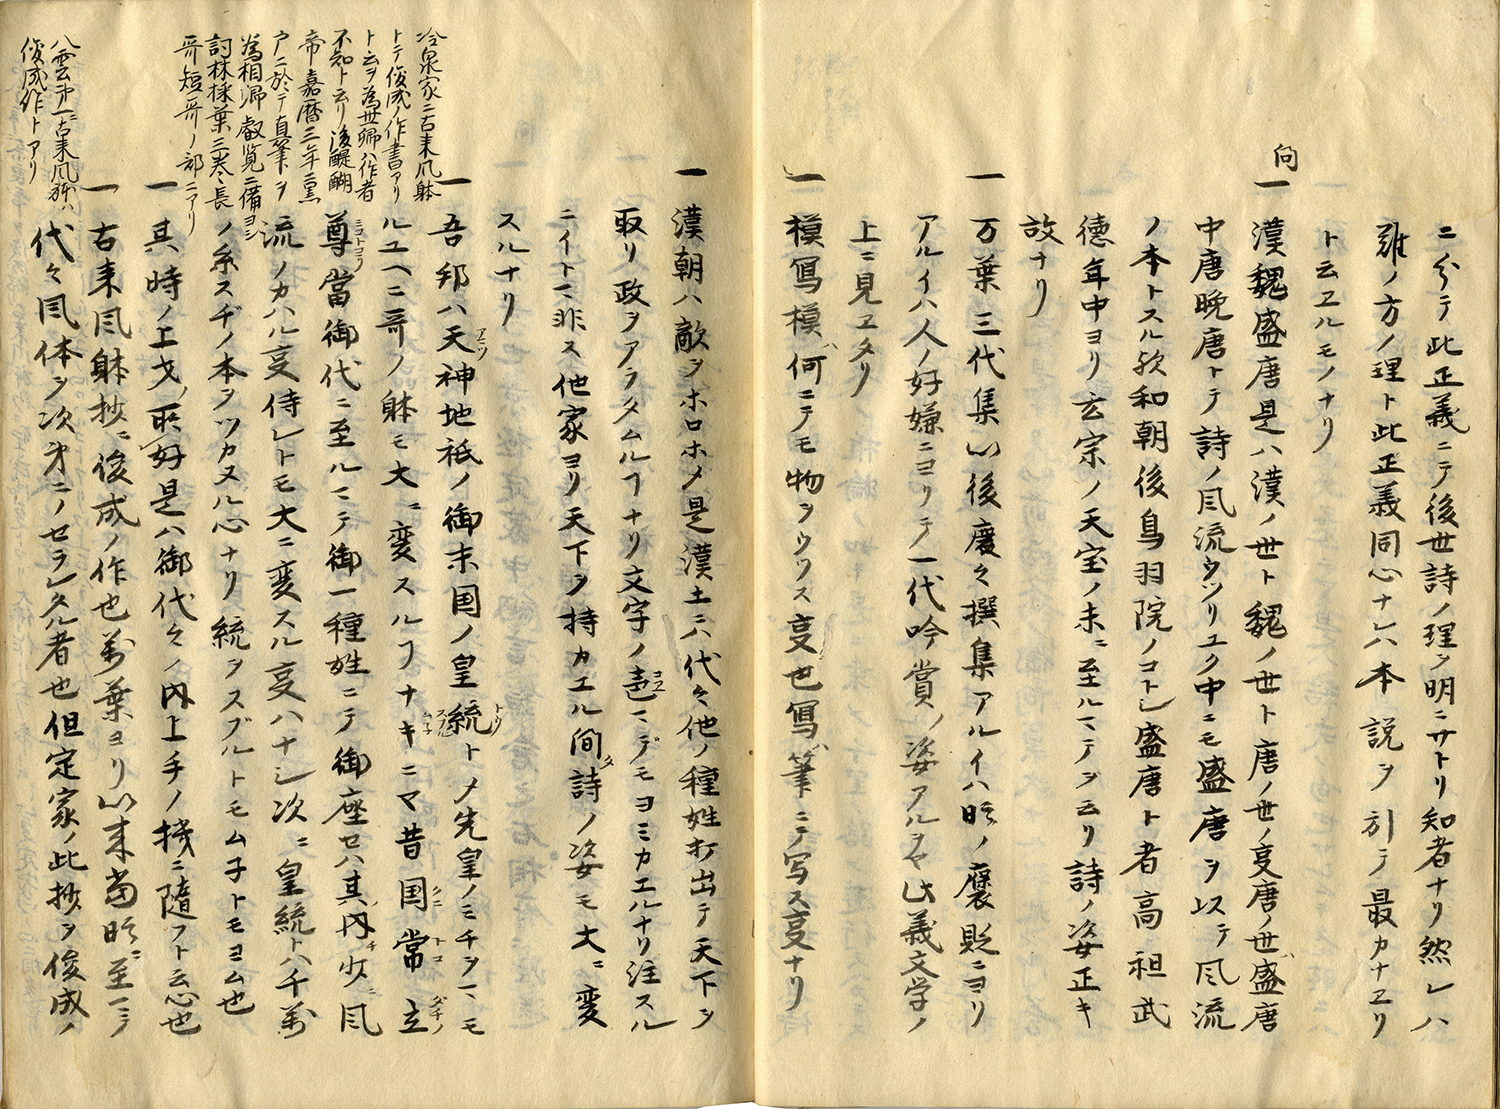 ニ分テ此正義ニテ後世詩ノ理ヲ明ニサトリ知者ナリ然レハ
難ノ方ノ理ト此正義同心ナレハ本説ヲ引テ最カナヱリ
ト云ヱルモノナリ
向
一 漢魏盛唐是ハ漢ノ世ト魏ノ世ト唐ノ世ノ叓唐ノ世盛唐
中唐晩唐トテ詩ノ風流ウツリユク中ニモ盛唐ヲ以テ風流
ノ本トスル歟和朝後鳥羽院ノコトシ盛唐ト者高祖武
徳年中ヨリ玄宗ノ天宝ノ末ニ至ルマテヲ云リ詩ノ姿正キ
故ナリ
一 万葉三代集以後度々撰集アルイハ時ノ褒貶ニヨリ
アルイハ人ノ好嫌ニヨリテ一代吟賞ノ姿アルヲヤ此義文学ノ
上ニ見ヱタリ
一 模写模ハ何ニテモ物ヲウツス叓也写ハ筆ニテ写ス叓ナリ
一 漢朝ハ敵ヲホロホメ是漢土ハ代々他ノ種姓打出テ天下ヲ
取リ政ヲアラタムルヿナリ文字ノ声コヱマデモヨミカエルナリ注スル
ニイトマ非ス他家ヨリ天下ヲ持カエル間タ詩ノ姿モ大ニ変
スルナリ
一 吾邦ハ天アマツ神地祇ノ御末国ノ皇統トメ先皇ノミチヲマモ
ルユヘニ哥ノ躰モ大ニ変スルヿナキニマ昔国クニ常トコ立ダチノ
尊ミコトヨリ當御代ニ至ルマテ御一種姓ニテ御座セハ其内チ少ニ風
流ノカハル叓侍レトモ大ニ変スル叓ハナシ次ニ皇統トハ千万
ノ糸スヂノ本ヲツカヌル心ナリ統ヲスブルトモム子トモヨム也
一 其時ノ上戈ノ所好是ハ御代々ノ内上チノ挍ニ随フト云心也
一 古来風躰抄ニ俊成ノ作也万葉ヨリ以来当時ニ至マテ
代々風体ヲ次第ニノセラレタル者也但定家ノ此抄ヲ俊成ノ
冷泉家ニ古来风躰
トテ俊成ノ作書アリ
ト云ヲ為世卿ハ作者
不知ト云リ後醍醐
帝嘉暦三年三黒
戸ニ於テ真筆ヲ
為相卿叡覧ニ備ヨシ
詞林採葉三巻長
哥短哥ノ部ニアリ
八雲第一ニ古来风躰ハ
俊成作トアリ